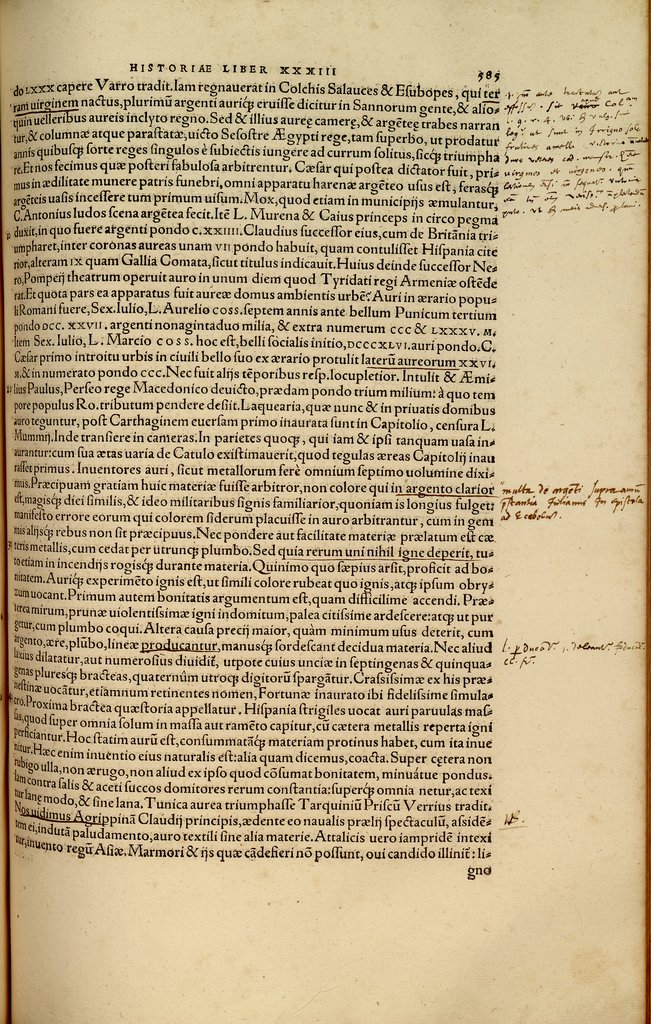 HISTORIAE LIBER XXXIII
585
do LXXX capere Varro tradit. Iam regnauerat in Colchis Salauces & Esubopes, qui ter
ram uirginem nactus, plurimũ argenti auriq́ʒ eruisse dicitur in Sannorum gente, & alio-
quin uelleribus aureis inclyto regno. Sed & illius aureę camerę, & argẽteę trabes narran
tur, & columnæ atque parastatæ, uicto Sesostre Ægypti rege, tam superbo, ut prodatur
annis quibusq́ʒ sorte reges singulos è subiectis iungere ad currum solitus, sicq́ʒ triumpha
re. Et nos fecimus quæ posteri fabulosa arbitrentur. Cæsar qui postea dictator fuit, pri-
mus in ædilitate munere patris funebri, omni apparatu harenæ argẽteo usus est, ferasq́ʒ
argẽteis uasis incessere tum primum uisum. Mox, quod etiam in municipijs æmulantur,
C. Antonius ludos scena argẽtea fecit. Itẽ L. Murena & Caius princeps in circo pegma
duxit, in quo fuere argenti pondo C.XXIIII. Claudius successor eius, cum de Britãnia tri-
umpharet, inter coronas aureas unam VII pondo habuit, quam contulisset Hispania cite
rior, alteram IX quam Gallia Comata, sicut titulus indicauit. Huius deinde successor Ne-
ro, Pompeij theatrum operuit auro in unum diem quod Tyridati regi Armeniæ ostẽde
rat. Et quota pars ea apparatus fuit aureæ domus ambientis urbẽ? Auri in ærario popu-
li Romani fuere, Sex. Iulio, L. Aurelio coss. septem annis ante bellum Punicum tertium
pondo DCC. XXVII. argenti nonagintaduo milia, & extra numerum CCC & LXXXV. M.
Item Sex. Iulio, L. Marcio coss. hoc est, belli socialis initio, DCCCXLVI. auri pondo. C.
Cæsar primo introitu urbis in ciuili bello suo ex ærario protulit laterũ aureorum XXVI.
M. & in numerato pondo CCC. Nec fuit alijs tẽporibus resp. locupletior. Intulit & Æmi-
lius Paulus, Perseo rege Macedonico deuicto, prædam pondo trium milium: à quo tem
pore populus Ro. tributum pendere desijt. Laquearia, quæ nunc & in priuatis domibus
auro teguntur, post Carthaginem euersam primo inaurata sunt in Capitolio, censura L.
Mummij. Inde transiere in cameras. In parietes quoq́ʒ, qui iam & ipsi tanquam uasa in-
aurantur: cum sua ætas uaria de Catulo existimauerit, quod tegulas æreas Capitolij inau
rasset primus. Inuentores auri, sicut metallorum ferè omnium septimo uolumine dixi-
mus. Præcipuam gratiam huic materiæ fuisse arbitror, non colore qui in argento clarior
est, magisq́ʒ diei similis, & ideo militaribus signis familiarior, quoniam is longius fulget:
manifesto errore eorum qui colorem siderum placuisse in auro arbitrantur, cum in gem
mis alijsq́ʒ rebus non sit præcipuus. Nec pondere aut facilitate materiæ prælatum est cæ
teris metallis, cum cedat per utrunq́ʒ plumbo. Sed quia rerum uni nihil igne deperit, tu-
to etiam in incendijs rogisq́ʒ durante materia. Quinimo quo sæpius arsit, proficit ad bo-
nitatem. Auriq́ʒ experimẽto ignis est, ut simili colore rubeat quo ignis, atq́ʒ ipsum obry-
zum uocant. Primum autem bonitatis argumentum est, quam difficilime accendi. Præ-
terea mirum, prunæ uiolentissimæ igni indomitum, palea citissime ardescere: atq́ʒ ut pur
getur, cum plumbo coqui. Altera causa precij maior, quàm minimum usus deterit, cum
argento, ære, plũbo, lineæ producantur, manusq́ʒ sordescant decidua materia. Nec aliud
laxius dilatatur, aut numerosius diuidit̃, utpote cuius unciæ in septingenas & quinqua-
genas pluresq́ʒ bracteas, quaternũm utroq́ʒ digitorũ spargãtur. Crassissimæ ex his præ-
nestinæ uocãtur, etiamnum retinentes nomen, Fortunæ inaurato ibi fidelissime simula-
cro. Proxima bractea quæstoria appellatur. Hispania strigiles uocat auri paruulas mas-
sas, quod super omnia solum in massa aut ramẽto capitur, cũ cætera metallis reperta igni
perficiantur. Hoc statim aurũ est, consummatãq́ʒ materiam protinus habet, cum ita inue
nitur. Hæc enim inuentio eius naturalis est: alia quam dicemus, coacta. Super cętera non
rubigo ulla, non ærugo, non aliud ex ipso quod cõsumat bonitatem, minuátue pondus.
Iam contra salis & aceti succos domitores rerum constantia: superq́ʒ omnia netur, ac texi
tur lanę modo, & sine lana. Tunica aurea triumphasse Tarquiniũ Priscũ Verrius tradit.
Nos uidimus Agrippinã Claudij principis, ædente eo naualis prælij spectaculũ, assidẽ-
tem ei, indutã paludamento, auro textili sine alia materie. Attalicis uero iampridẽ intexi
tur, inuento regũ Asiæ. Marmori & ijs quæ cãdefieri nõ possunt, oui candido illinit̃: li-
gno
multa de argẽti supra aurũ
pstantia Julianus in epistola
ad Ecebolũ